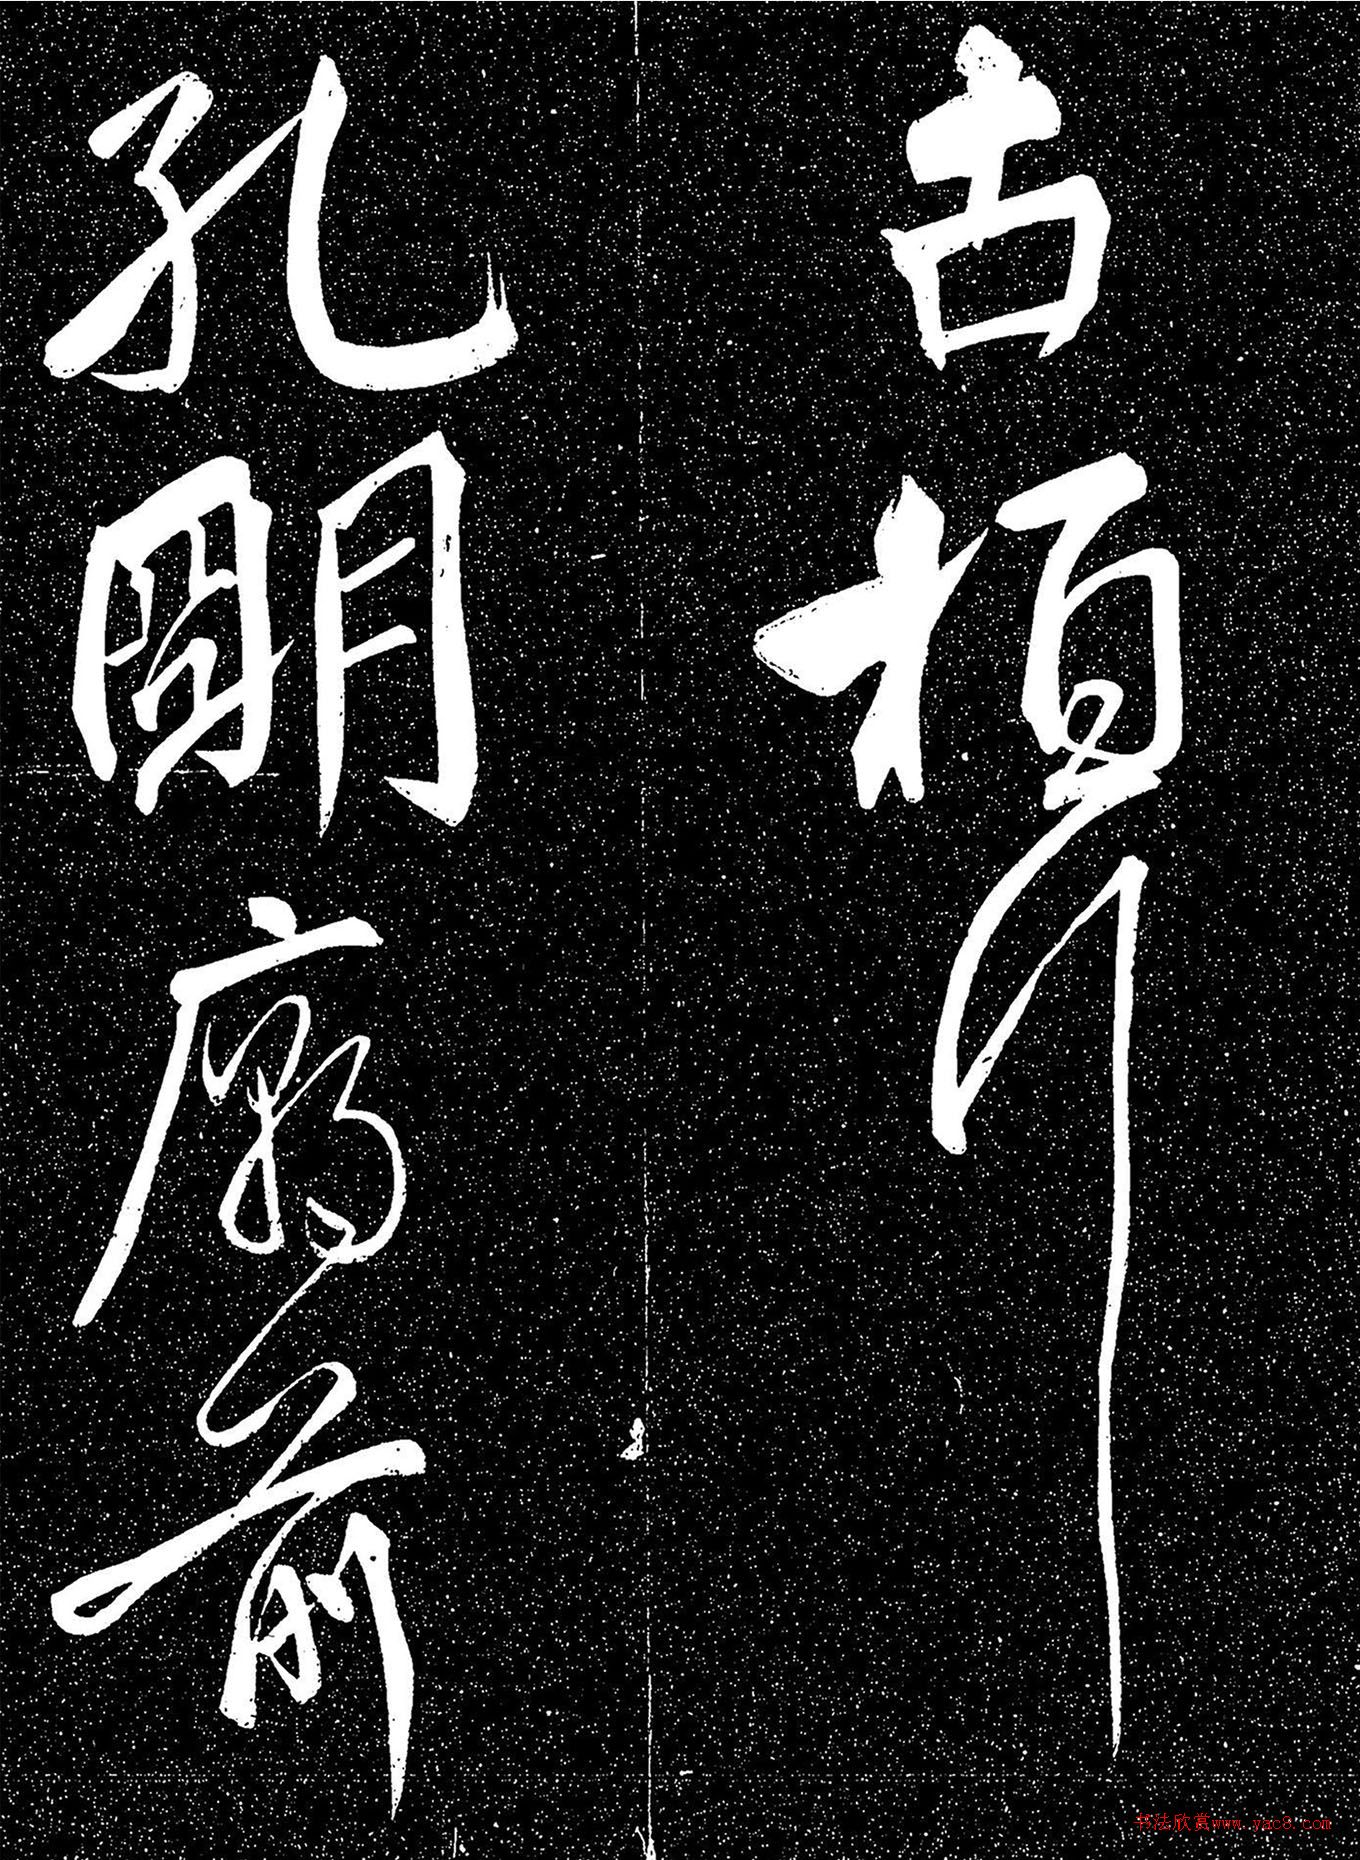 古柏行
孔明廟前
书法欣赏www.yac8.com